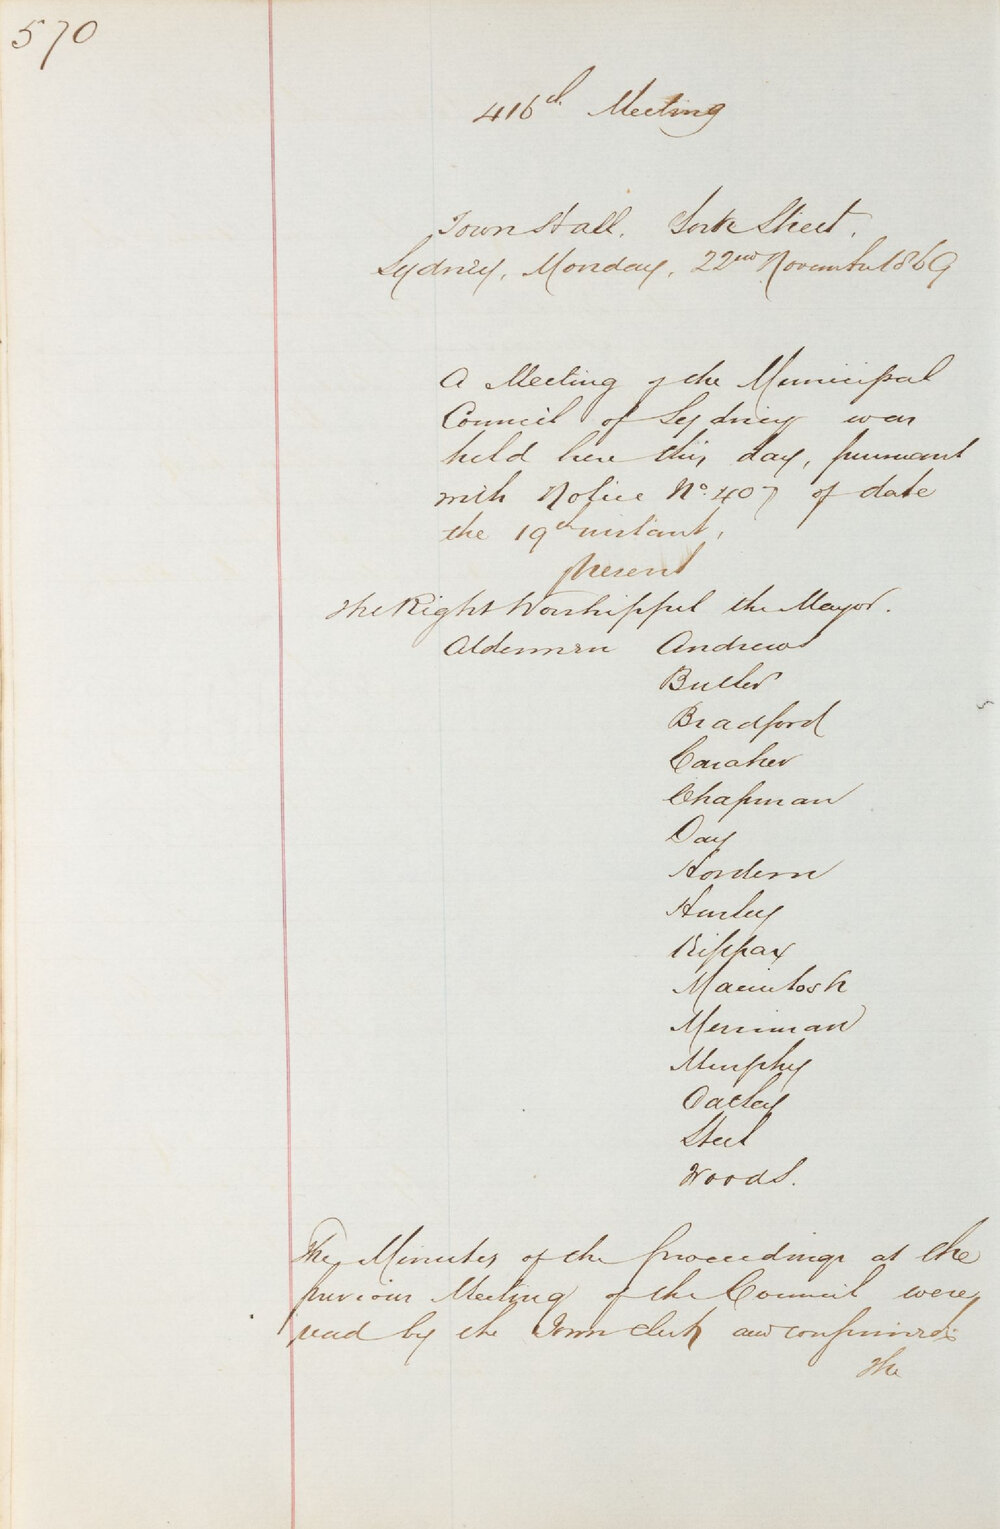 570
416th Meeting
Town Hall. York Street.
Sydney, Monday, 22nd November 1869
A Meeting of the Municipal
Council of Sydney was
held here this day, pursuant
with Notice No. 407 of date
the 19th instant,
present
The Right Worshipful the Mayor.
Aldermen Andrews
Butler
Bradford
Caraher
Chapman
Day
Hordern
Hurley
Kippax
Macintosh
Merriman
Murphy
Oatley
Steel
Woods.
The Minutes of the proceedings at the
previous Meeting of the Council were
read by the Town Clerk and confirmed.
The